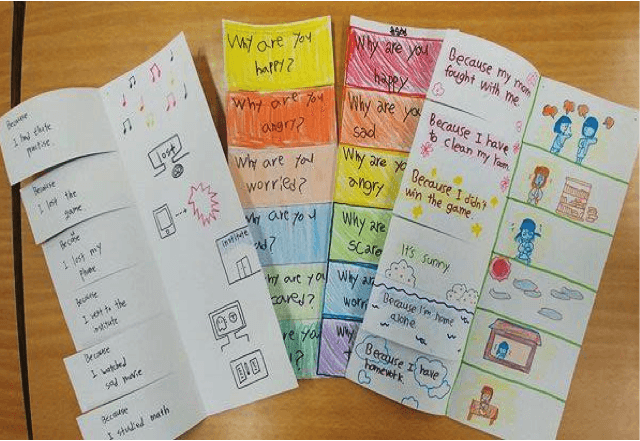 Because
I had flute
practise.
Because
I lost the
game.
I lost my
phone
Because
I went to the
institute
Because
I watched
sad movie
Because
I studied math
lost
institute
Why are you
happy?
Why are you
angry?
Why are you
worried?
Why are you
Why are you
happy
Why are you
sad
Why are you
angry
Why are
Because my mom
fought with me.
Because I have
to clean my room.
Because I didn't
win the game.
It's sunny
Because I'm home
alone.
Because I have
homework